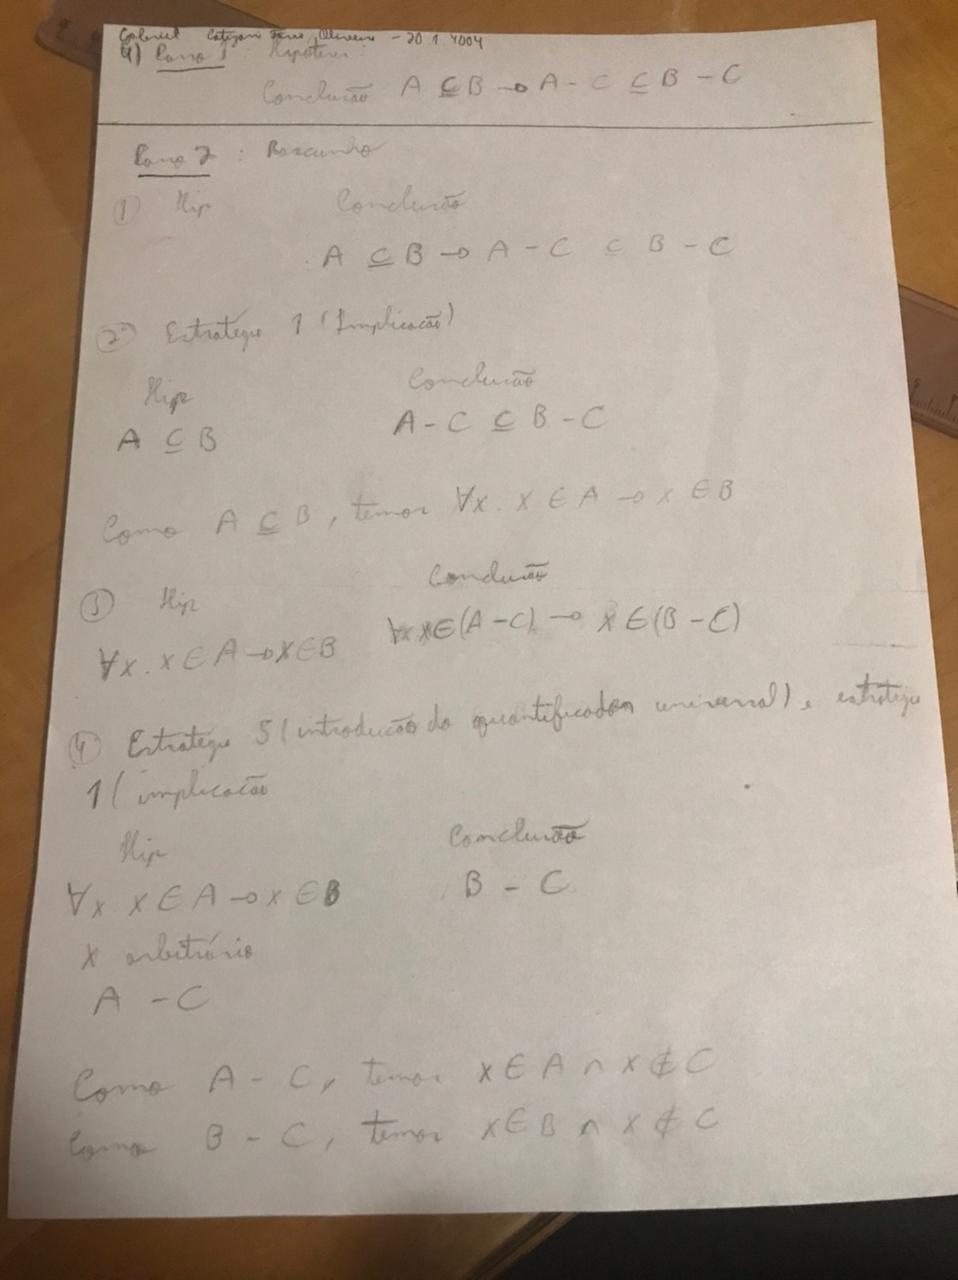 Gabriel Catizani Faria Oliveira - 20.1.4004
4) Passo 1: Hipóteses:
Conclusão A ⊆ B → A - C ⊆ B - C
Passo 2: Rascunho
① Hip Conclusão
A ⊆ B → A - C ⊆ B - C
② Estratégia 1 (Implicação)
Hip Conclusão
A ⊆ B A - C ⊆ B - C
Como A ⊆ B, temos ∀x. x ∈ A → x ∈ B
③ Hip Conclusão
∀x. x ∈ A → x ∈ B ∀x x ∈ (A - C) → x ∈ (B - C)
④ Estratégia 5 (introdução do quantificador universal), e estratégia
1 (implicação
Hip Conclusão
∀x. x ∈ A → x ∈ B B - C
x arbitrário
A - C
Como A - C, temos x ∈ A ∩ x ∉ C
Como B - C, temos x ∈ B ∩ x ∉ C